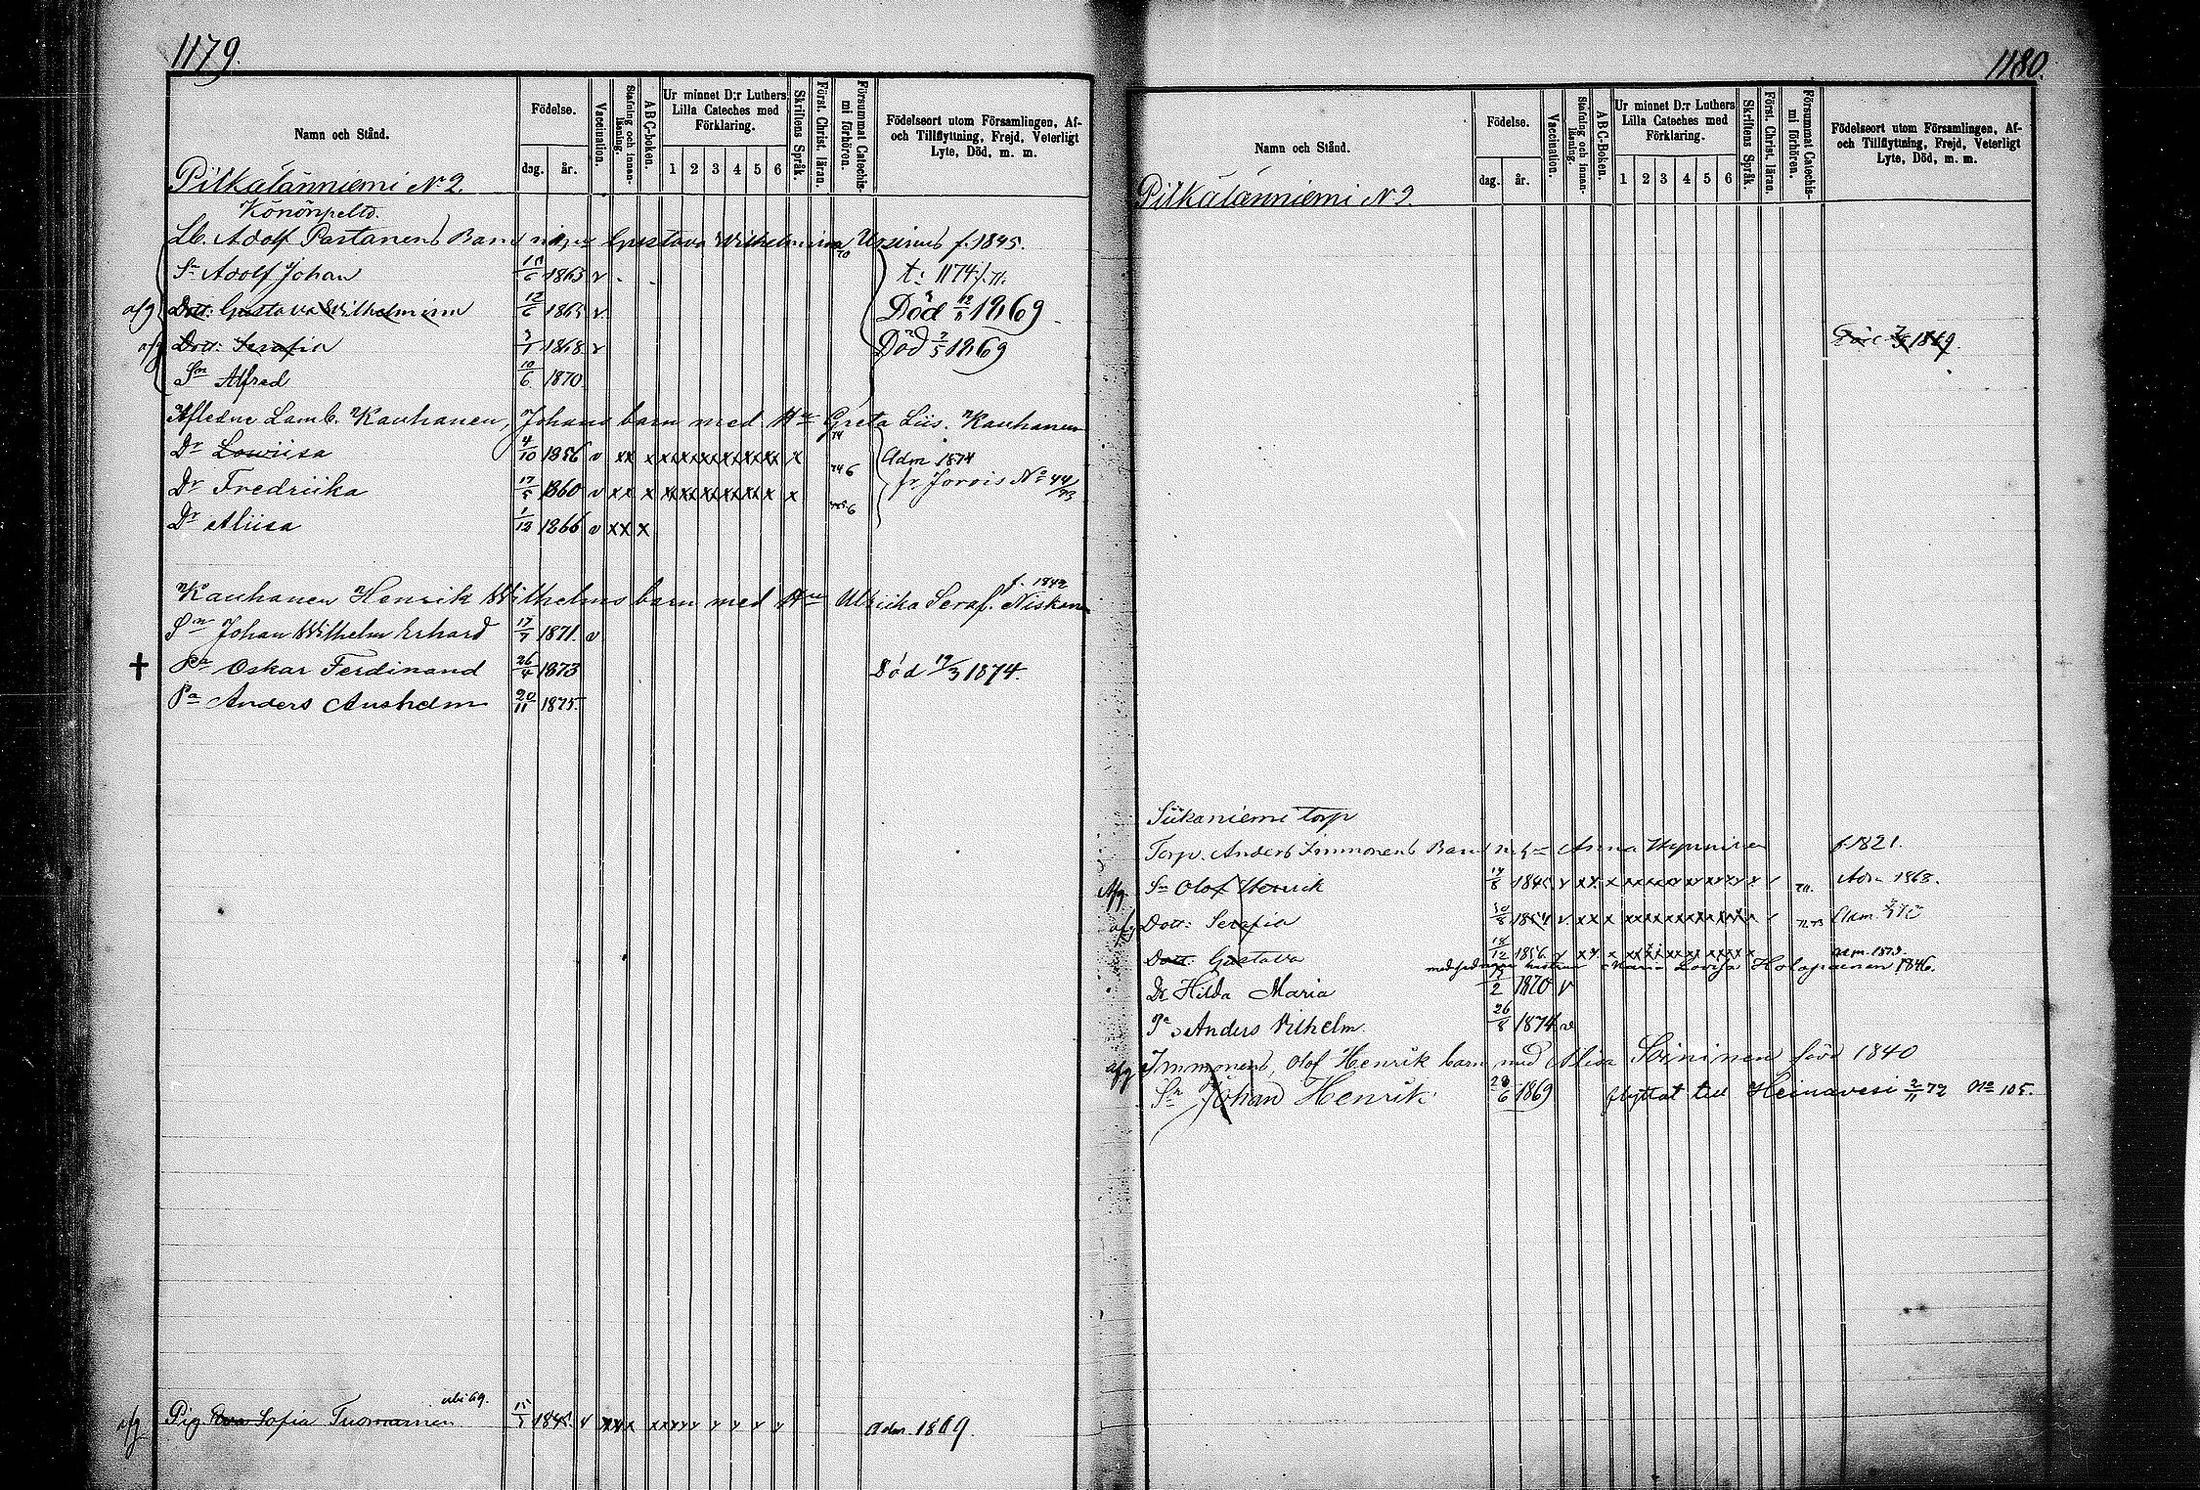 1179.
Namn och Stånd.
Födelse.
dag. år.
Vaccination.
Stafning och innanläsning.
ABC-boken.
Ur minnet D:r Luthers Lilla Cateches med Förklaring.
1 2 3 4 5 6
Skriftens Språk.
Först. Christ. läran.
Försummat Catechismi förhören.
Födelseort utom Församlingen, Af- och Tillflyttning, Frejd, Veterligt Lyte, Död, m. m.
Pitkälänniemi No 2.
Könönpelto.
Lb. Adolf Partanens Barn Gustava Wilhelmina Ursinus f. 1845.
Sn Adolf Johan 1863 v t: 1174/71.
afg Dott: Gustava Wilhelmina 12/6 1865 v Död 12/5 1869
afg Dott: Serafia 1868 v Död 2/5 1869
Sn Alfred 10/6 1870
Afledne Lamb. Kauhanen, Johans barn med Hu Greta Liis. Kauhanen
Dr Lowiisa 4/10 1856 v xx x xxxxxxxxxxx x 74 Adm 1874
Dr Fredriika 17/5 1860 v xx x xxxxxxxxxx x 74 6 fr. Jorois No 44/73
Dr Aliisa 1/12 1866 v xx x
Kauhanen Henrik Wilhelms barn med Hu Ulriika Seraf. Niskanen f. 1842
Sn Johan Wilhelm Erhard 17/7 1871. v
† Pa Oskar Ferdinand 26/4 1873 Död 19/3 1874.
Pa Anders Anshelm 20/11 1875.
afg Pig. Eva Sofia Tuomainen 1845 v Adm. 1869.
1180.
Namn och Stånd.
Födelse.
dag. år.
Vaccination.
Stafning och innanläsning.
ABC-Boken.
Ur minnet D:r Luthers Lilla Cateches med Förklaring.
1 2 3 4 5 6
Skriftens Språk.
Först. Christ. läran.
Försummat Catechismi förhören.
Födelseort utom Församlingen, Af- och Tillflyttning, Frejd, Veterligt Lyte, Död, m. m.
Pitkälänniemi No 2
1869.
Siikaniemi torp
Torp. Anders Immonens Barn Anna f. 1821.
Afg Sn Olof Henrik 1845 v xx x Adm 1863.
afg Dott: Serafia 1854 v xx x Adm
Dott: Gustava 18/12 1856 v xx x Adm. 1873.
med hustrun Maria Lovisa Holopainen 1846.
Dr Hilda Maria 2 1870 v
Pa Anders Vilhelm. 26/8 1874 v
afg Immonens, Olof Henrik barn med Alisa Soininen född 1840
Sn Johan Henrik 28/6 1869 flyttat till Heinävesi 2/11 72 No 105.